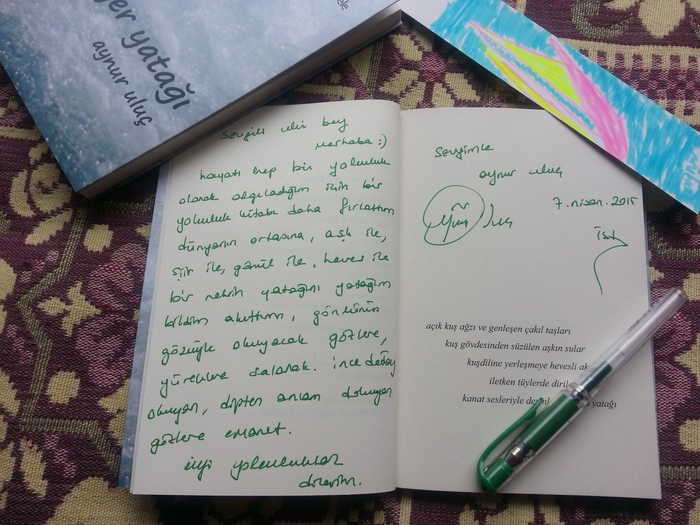 er yatağı
aynur uluş
sevgili ulvi bey
merhaba :)
hayatı hep bir yolculuk
olarak algıladığım için bir
yolculuk kitabı daha fırlattım
dünyanın ortasına, aşk ile,
şiir ile, gönül ile, heves ile
bir nehrin yatağını yatağım
bildim akıttım, gönlünün
gözüyle okuyacak gözlere,
yüreklere dalarak. ince detay
okuyan, dipten anlam dokuyan
gözlere emanet.
iyi yolculuklar
dilerim.
Sevgimle
aynur uluş
7.nisan.2015
ist
açık kuş ağzı ve genleşen çakıl taşları
kuş gövdesinden süzülen aşkın sular
kuşdiline yerleşmeye hevesli
iletken tüylerde
kanat sesleriyle yatağı